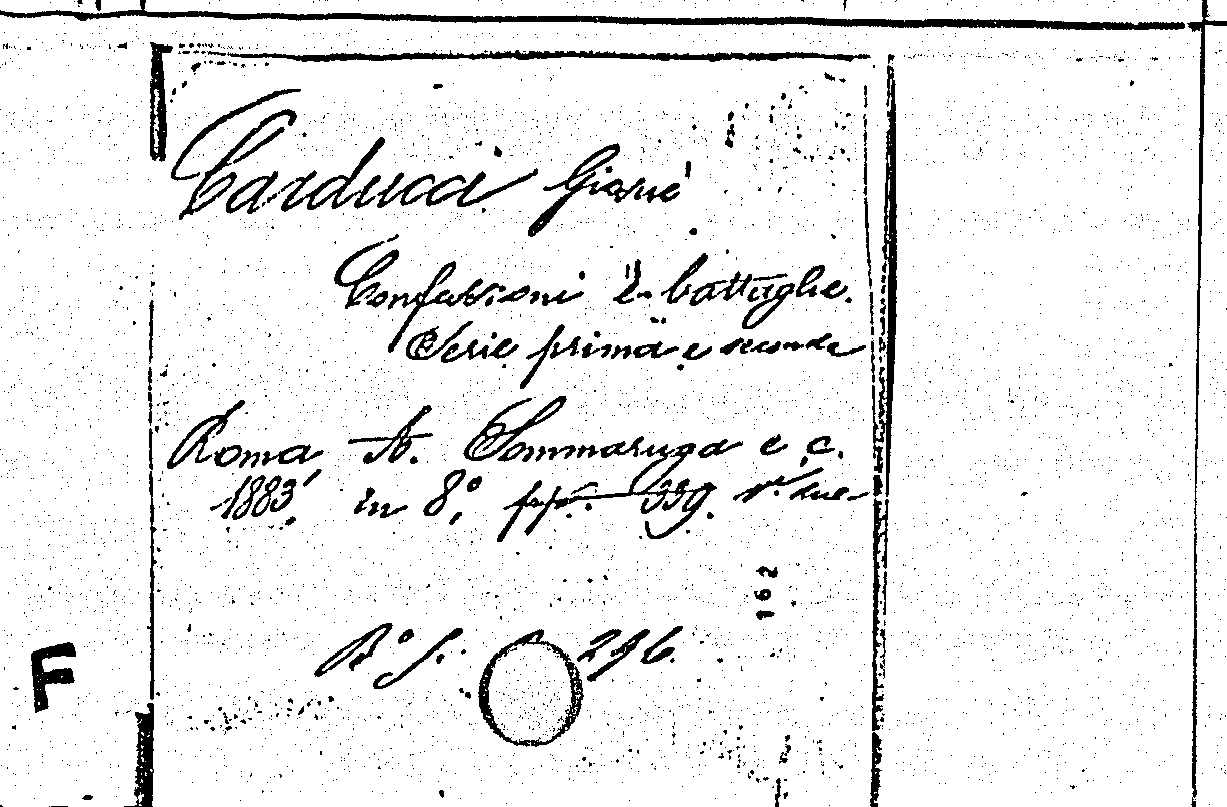 Carducci Giosuè
Confessioni e battaglie.
Serie prima e seconda
Roma, A. Sommaruga e c.
1883. in 8°, pp. 339. vi. due
162
R° S. 296.
F